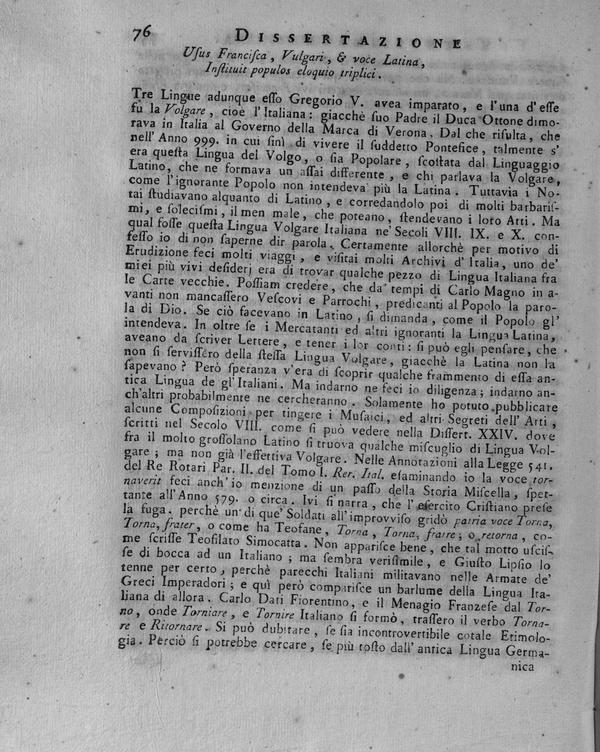 76 DISSERTAZIONE
Uſus Franciſca, Vulgari, & voce Latina,
Inſtituit populos eloquio triplici.
Tre Lingue adunque eſſo Gregorio V. avea imparato, e l'una d'eſſe
fu la Volgare, cioè l'Italiana: giacchè ſuo Padre il Duca Ottone dimo-
rava in Italia al Governo della Marca di Verona. Dal che riſulta, che
nell'Anno 999. in cui finì di vivere il ſuddetto Pontefice, talmente s'
era queſta Lingua del Volgo, o ſia Popolare, ſcoſtata dal Linguaggio
Latino, che ne formava un aſſai differente, e chi parlava la Volgare,
come l'ignorante Popolo non intendeva più la Latina. Tuttavia i No-
tai ſtudiavano alquanto di Latino, e corredandolo poi di molti barbariſ-
mi, e ſoleciſmi, il men male, che poteano, ſtendevano i loro Atti. Ma
qual foſſe queſta Lingua Volgare Italiana ne' Secoli VIII. IX. e X. con-
feſſo io di non ſaperne dir parola. Certamente allorchè per motivo di
Erudizione feci molti viaggi, e viſitai molti Archivj d'Italia, uno de'
miei più vivi deſiderj era di trovar qualche pezzo di Lingua Italiana fra
le Carte vecchie. Poſſiam credere, che da' tempi di Carlo Magno in a-
vanti non mancaſſero Veſcovi e Parrochi, predicanti al Popolo la paro-
la di Dio. Se ciò facevano in Latino, ſi dimanda, come il Popolo gl'
intendeva. In oltre ſe i Mercatanti ed altri ignoranti la Lingua Latina,
aveano da ſcriver Lettere, e tener i lor conti: ſi può egli penſare, che
non ſi ſerviſſero della ſteſſa Lingua Volgare, giacchè la Latina non la
ſapevano? Però ſperanza v'era di ſcoprir qualche frammento di eſſa an-
tica Lingua de gl'Italiani. Ma indarno ne feci io diligenza; indarno an-
ch'altri probabilmente ne cercheranno. Solamente ho potuto pubblicare
alcune Compoſizioni per tingere i Muſaici, ed altri Segreti dell'Arti,
ſcritti nel Secolo VIII. come ſi può vedere nella Diſſert. XXIV. dove
fra il molto groſſolano Latino ſi truova qualche miſcuglio di Lingua Vol-
gare; ma non già l'effettiva Volgare. Nelle Annotazioni alla Legge 541.
del Re Rotari Par. II. del Tomo I. Rer. Ital. eſaminando io la voce tor-
naverit feci anch'io menzione di un paſſo della Storia Miſcella, ſpet-
tante all'Anno 579. o circa. Ivi ſi narra, che l'eſercito Criſtiano preſe
la fuga. perchè un' di que' Soldati all'improvviſo gridò patria voce Torna,
Torna, frater, o come ha Teofane, Torna, Torna, fratre; o retorna, co-
me ſcriſſe Teofilato Simocatta. Non appariſce bene, che tal motto uſciſ-
ſe di bocca ad un Italiano; ma ſembra veriſimile, e Giuſto Lipſio lo
tenne per certo, perchè parecchi Italiani militavano nelle Armate de'
Greci Imperadori; e quì però compariſce un barlume della Lingua Ita-
liana di allora. Carlo Dati Fiorentino, e il Menagio Franzeſe dal Tor-
no, onde Torniare, e Tornire Italiano ſi formò, traſſero il verbo Torna-
re e Ritornare. Si può dubitare, ſe ſia incontrovertibile cotale Etimolo-
gia. Perciò ſi potrebbe cercare, ſe più toſto dall'antica Lingua Germa-
nica